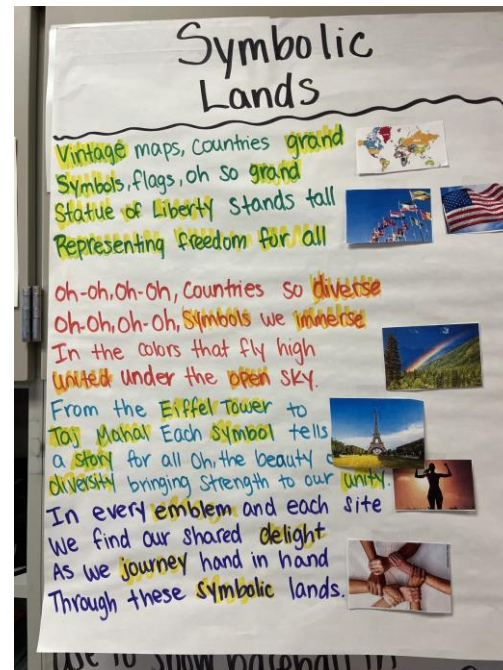 Symbolic
Lands
Vintage maps, Countries grand
Symbols, flags, oh so grand
Statue of Liberty stands tall
Representing freedom for all
Oh-oh, Oh-Oh, Countries so diverse
Oh-Oh, Oh-Oh, Symbols we immerse
In the colors that fly high
united under the open sky.
From the Eiffel Tower to
Taj Mahal Each symbol tells
a story for all Oh, the beauty
diversity bringing strength to our unity.
In every emblem and each site
We find our shared delight
As we journey hand in hand
Through these symbolic lands.
use to show baseball in